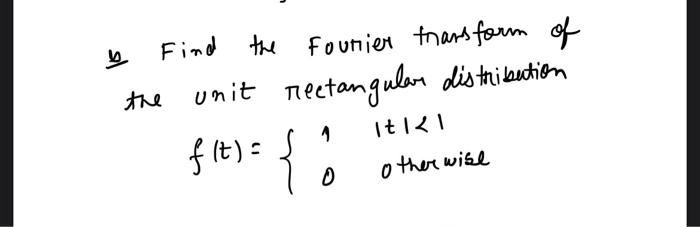 b Find the Fourier transform of
the unit rectangular distribution
f(t) = { 1 |t|<1
0 otherwise